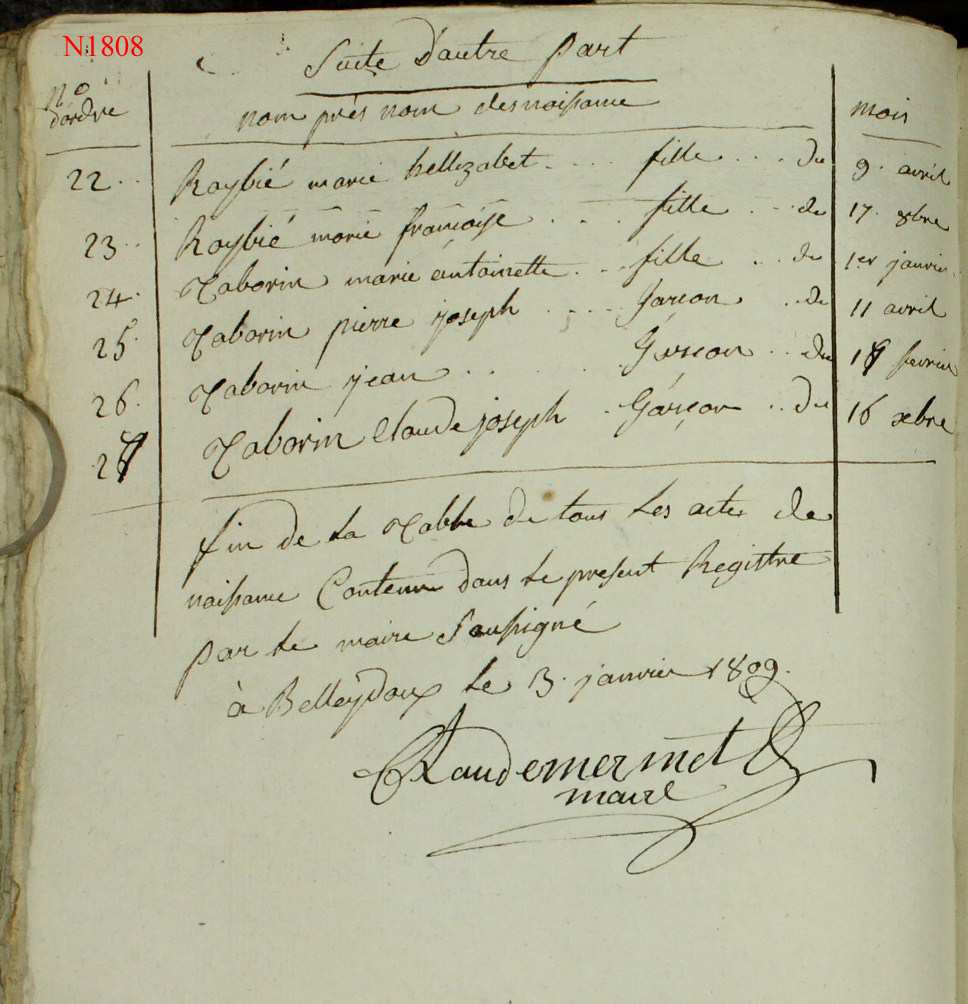 N1808
Suite d'autre part
No d'ordre nom prés nom des naissance mois
22 Raybié marie hellizabet fille du 9 avril
23 Raybié marie françoise fille du 17 8bre
24 Taborin marie antoinette fille du 1er janvier
25 Taborin pierre joseph Garçon du 11 avril
26 Taborin jean Garçon du fevrier
27 Taborin Claude joseph Garçon du 16 xbre
fin de la Table de tous les actes de
naissance Contenu dans le present Registre
par le maire Soussigné
à Belleydoux le 3 janvier 1809.
Claude mermet
maire